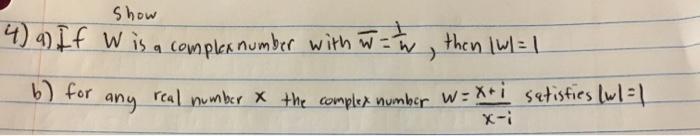 Show
4) a) If w is a complex number with w̅ = 1/w, then |w|=1
b) for any real number x the complex number w = x+i/x-i satisfies |w|=1